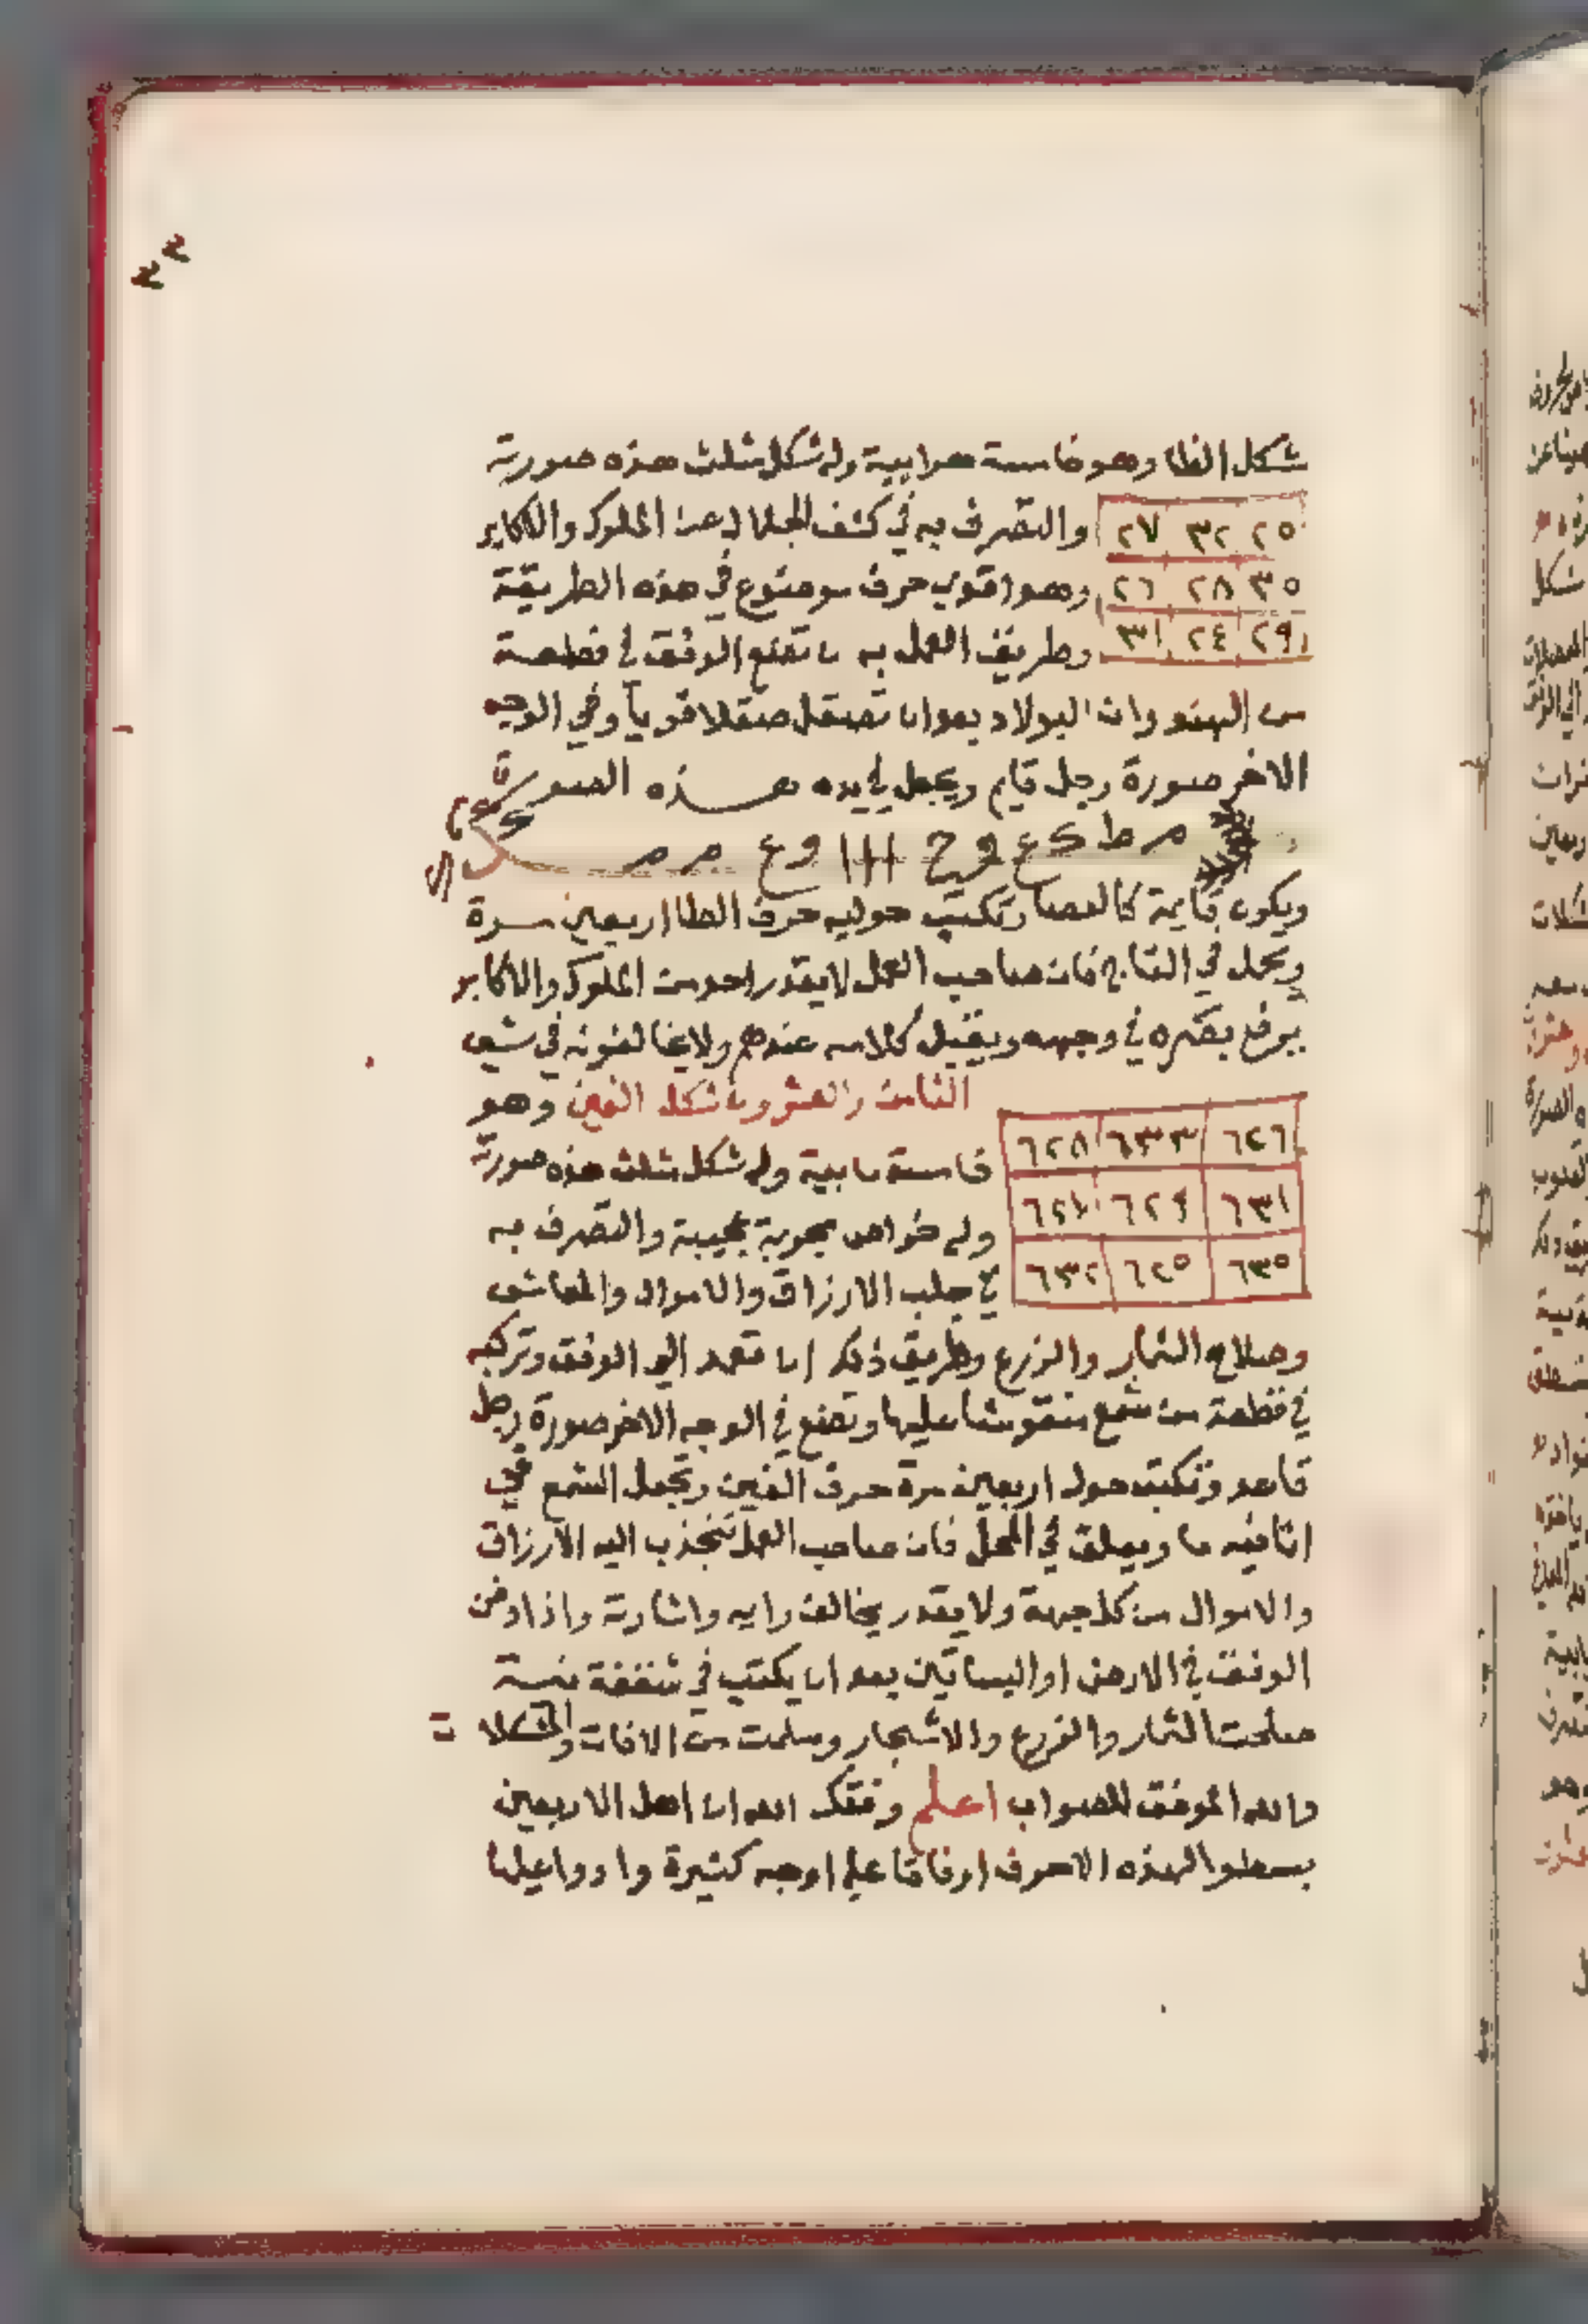 ٣٣
شكل الظا وهو خامسة هوايية وله شكل مثلث هذه صورته
٢٥ ٣٢ ٢٧ والتصرف به في كشف المظالم عن الملوك والاكابر
٣٥ ٢٨ ٢٦ وهو اقوي حرف موضوع في هذه الطريقة
٢٩ ٢٤ ٣١ وطريق العمل به ان تضع الوفق في قطعة
من الهندوان البولاد بعد ان تصقل صقلا قويا وفي الوجه
الاخر صورة رجل قايم ويجعل في يده هذه الصورة
ويكون قايمة كالعصا وتكتب حوليه حرف الظا اربعين مرة
ويحمل في التاج فان صاحب العمل لا يقدر احد من الملوك والاكابر
يرفع بصره في وجهه ويقبل كلامه عندهم ولا يخالفونه في شي
الثامن والعشرون شكل الغين وهو
٦٢٦ ٦٣٣ ٦٢٨
خامسة مايية وله شكل مثلث هذه صورته
٦٣١ ٦٢٩ ٦٢٧
وله خواص مجربة عجيبة والتصرف به
٦٣٥ ٦٢٥ ٦٣٢
في جلب الارزاق والاموال والمعاش
وصلاح الثمار والزرع وطريق ذلك ان تعمد الي الوفق وتركبه
في قطعة من شمع منقوشا عليها وتضع في الوجه الاخر صورة رجل
قاعد وتكتب حوله اربعين مرة حرف الغين وتجعل الشمع في
انا فيه ما ويعلق في المحل فان صاحب العمل تنجذب اليه الارزاق
والاموال من كل جهة ولا يقدر يخالف رايه واشارته واذا دفن
الوفق في الارض او البساتين بعد ان يكتب في شقفة نية
صلحت الثمار والزرع والاشجار وسلمت من الافات والمشكلات
والله الموفق للصواب اعلم وفقك الله ان اهل الاربعين
بسطوا لهذه الاحرف اوفاقا علي اوجه كثيرة واوردوا عليها